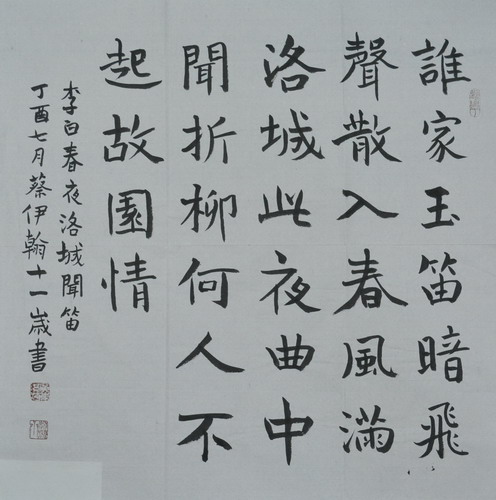 誰家玉笛暗飛
聲散入春風滿
洛城此夜曲中
聞折柳何人不
起故園情
李白春夜洛城聞笛
丁酉七月蔡伊翰十一歲書